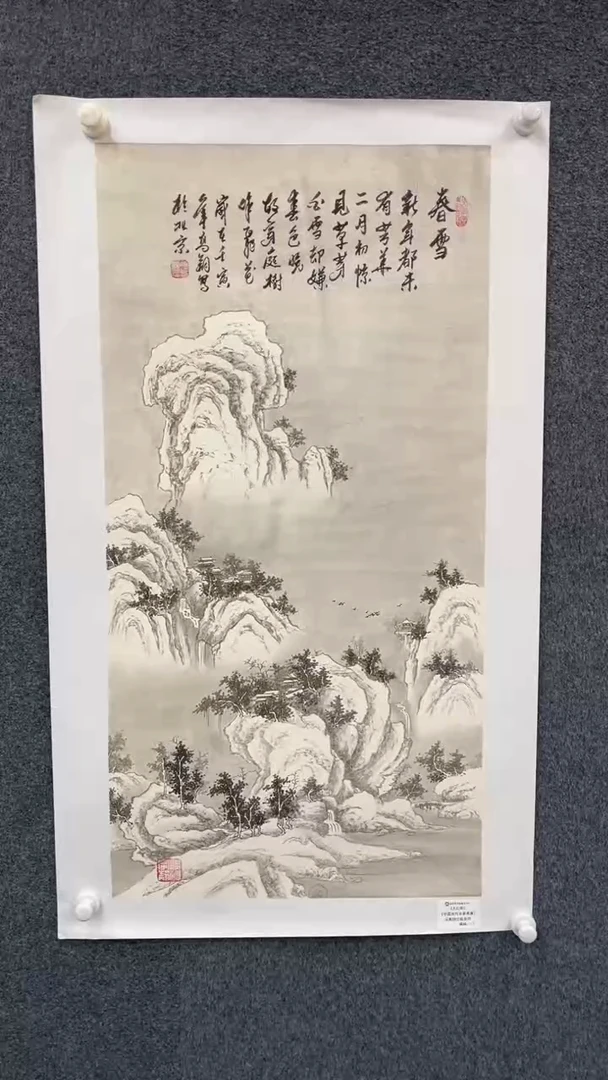 春雪
新年都未
有芳華
二月初惊
見草芽
白雪却嫌
春色晚
故穿庭樹
作飛花
歲在壬寅
寫
於北京